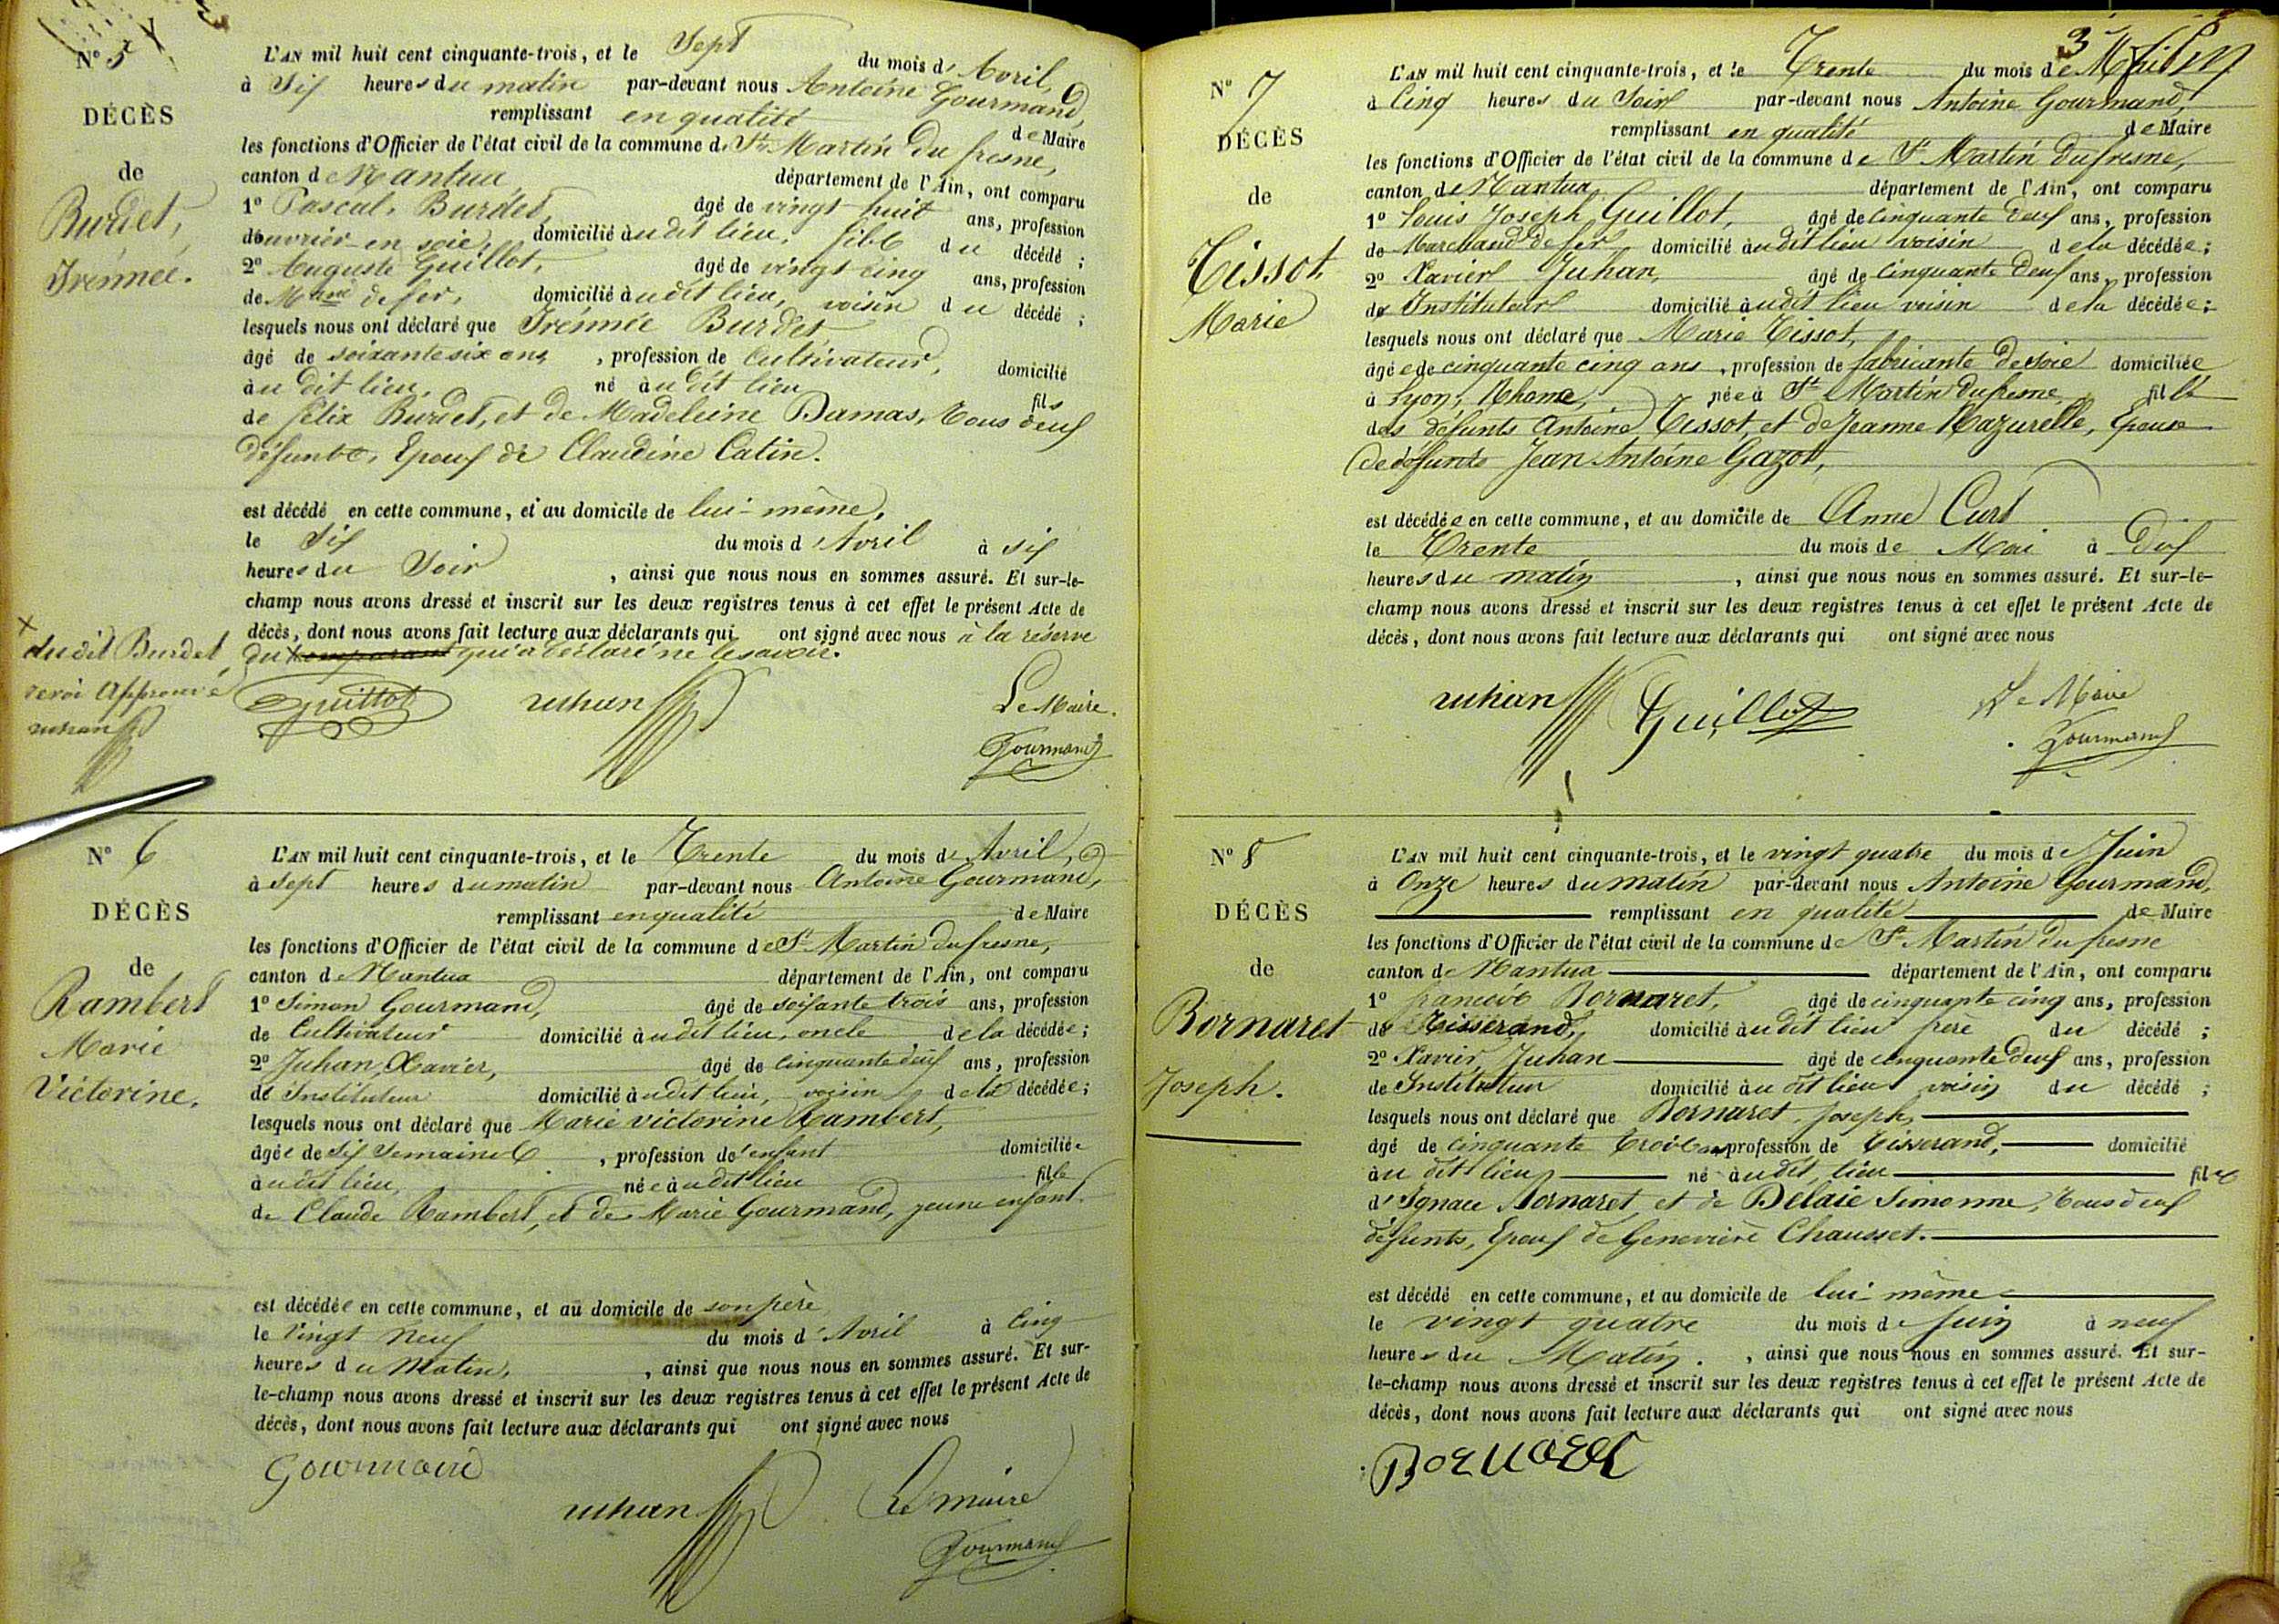 N° 5
DÉCÈS
de
Burdet,
Irénnée.
L'AN mil huit cent cinquante-trois, et le Sept du mois d'Avril,
à Six heures du matin par-devant nous Antoine Gourmand,
remplissant en qualité de Maire
les fonctions d'Officier de l'état civil de la commune de St Martin du fresne,
canton de Nantua département de l'Ain, ont comparu
1° Pascal Burdet, âgé de vingt huit ans, profession
d'ouvrier en soie, domicilié audit lieu, fils du décédé ;
2° Auguste Guillot, âgé de vingt cinq ans, profession
de Mand de fer, domicilié audit lieu, voisin du décédé ;
lesquels nous ont déclaré que Irénnée Burdet
âgé de soixante six ans, profession de Cultivateur, domicilié
au dit lieu, né audit lieu fils
de félix Burdet, et de Madeleine Damas, tous deux
défunts, Epoux de Claudine Catin.
est décédé en cette commune, et au domicile de lui-même,
le Six du mois d'Avril à six
heures du Soir, ainsi que nous nous en sommes assuré. Et sur-le-
champ nous avons dressé et inscrit sur les deux registres tenus à cet effet le présent Acte de
décès, dont nous avons fait lecture aux déclarants qui ont signé avec nous à la réserve
du X comparant qui a déclaré ne le savoir.
X
du dit Burdet
renvoi Approuvé
Juhan
Guillot Juhan Le Maire.
Gourmand
N° 6
DÉCÈS
de
Rambert
Marie
Victorine.
L'AN mil huit cent cinquante-trois, et le Trente du mois d'Avril,
à Sept heures du matin par-devant nous Antoine Gourmand,
remplissant en qualité de Maire
les fonctions d'Officier de l'état civil de la commune de St Martin du fresne,
canton de Nantua département de l'Ain, ont comparu
1° Simon Gourmand, âgé de soixante trois ans, profession
de Cultivateur domicilié audit lieu, oncle de la décédée ;
2° Juhan, Xavier, âgé de cinquante deux ans, profession
de Instituteur domicilié audit lieu, voisin de la décédée ;
lesquels nous ont déclaré que Marie Victorine Rambert,
âgée de Six Semaines, profession de enfant domiciliée
audit lieu, née audit lieu fille
de Claude Rambert, et de Marie Gourmand, jeune enfant.
est décédée en cette commune, et au domicile de son père
le Vingt Neuf du mois d'Avril à Cinq
heures du Matin, ainsi que nous nous en sommes assuré. Et sur-
le-champ nous avons dressé et inscrit sur les deux registres tenus à cet effet le présent Acte de
décès, dont nous avons fait lecture aux déclarants qui ont signé avec nous
Gourmand
Juhan Le maire
Gourmand
3
N° 7
DÉCÈS
de
Tissot
Marie
L'AN mil huit cent cinquante-trois, et le Trente du mois de Mai
à Cinq heures du Soir par-devant nous Antoine Gourmand,
remplissant en qualité de Maire
les fonctions d'Officier de l'état civil de la commune de St Martin du fresne,
canton de Nantua, département de l'Ain, ont comparu
1° Louis Joseph Guillot, âgé de cinquante deux ans, profession
de Marchand de fer domicilié audit lieu voisin de la décédée ;
2° Xavier Juhan, âgé de cinquante deux ans, profession
de Instituteur domicilié audit lieu voisin de la décédée ;
lesquels nous ont déclaré que Marie Tissot,
âgée de cinquante cinq ans, profession de fabricante de soie domiciliée
à Lyon, Rhone, née à St Martin du fresne, fille
des défunts Antoine Tissot, et de Jeanne Mazurelle, Epouse
de défunts Jean Antoine Gazot,
est décédée en cette commune, et au domicile de Anne Curt
le Trente du mois de Mai à Dix
heures du matin, ainsi que nous nous en sommes assuré. Et sur-le-
champ nous avons dressé et inscrit sur les deux registres tenus à cet effet le présent Acte de
décès, dont nous avons fait lecture aux déclarants qui ont signé avec nous
Juhan Guillot Le Maire
Gourmand
N° 8
DÉCÈS
de
Bornaret
Joseph.
L'AN mil huit cent cinquante-trois, et le vingt quatre du mois de Juin
à Onze heures du matin par-devant nous Antoine Gourmand,
remplissant en qualité de Maire
les fonctions d'Officier de l'état civil de la commune de St Martin du fresne
canton de Nantua département de l'Ain, ont comparu
1° francois Bornaret, âgé de cinquante cinq ans, profession
de Tisserand, domicilié audit lieu frère du décédé ;
2° Xavier Juhan âgé de cinquante deux ans, profession
de Instituteur domicilié au dit lieu voisin du décédé ;
lesquels nous ont déclaré que Bornaret, Joseph,
âgé de cinquante trois ans profession de Tisserand, domicilié
au dit lieu né audit lieu fils
d'Ignace Bornaret, et de Delaie Simonne, tous deux
défunts, Epoux de Genevière Chausset.
est décédé en cette commune, et au domicile de lui-même
le vingt quatre du mois de Juin à neuf
heures du Matin., ainsi que nous nous en sommes assuré. Et sur-
le-champ nous avons dressé et inscrit sur les deux registres tenus à cet effet le présent Acte de
décès, dont nous avons fait lecture aux déclarants qui ont signé avec nous
Bornaret